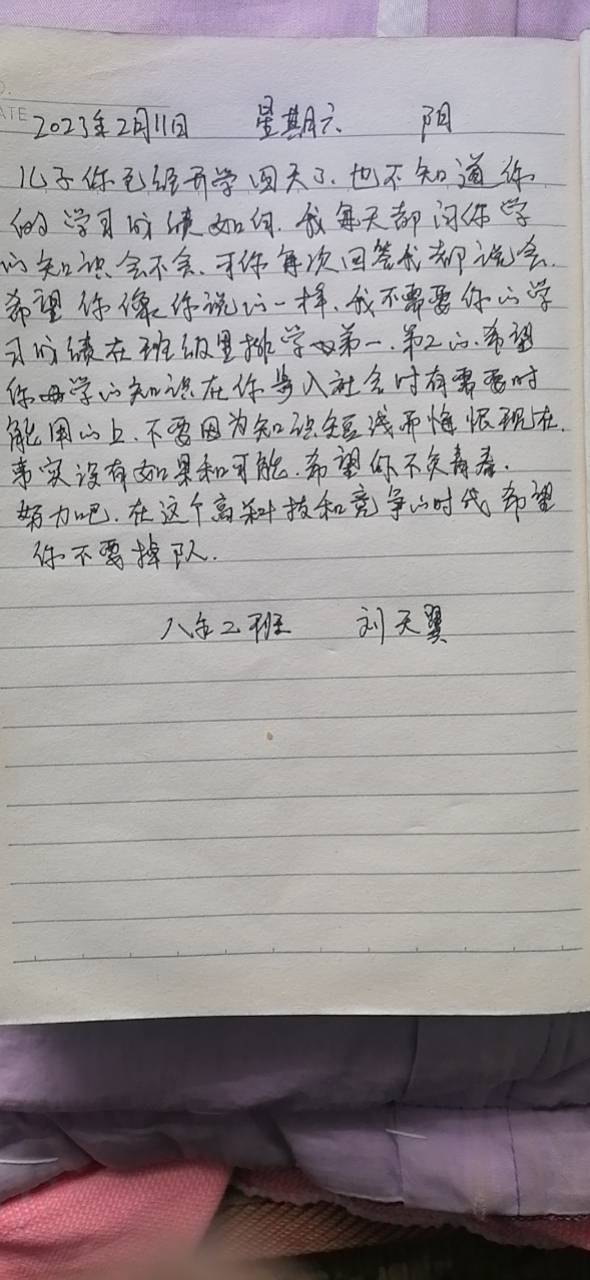 ATE 2023年2月11日 星期六 阴
儿子你已经开学四天了.也不知道你
的学习成绩如何.我每天都问你学
的知识会不会.可你每次回答我都说会.
希望你像你说的一样.我不需要你的学
习成绩在班级里排学第一.第2的.希望
你学的知识在你步入社会时有需要时
能用的上.不要因为知识短浅而悔恨现在.
事实没有如果和可能.希望你不负青春.
努力吧.在这个高科技和竞争的时代希望
你不要掉队.
八年二班 刘天翼